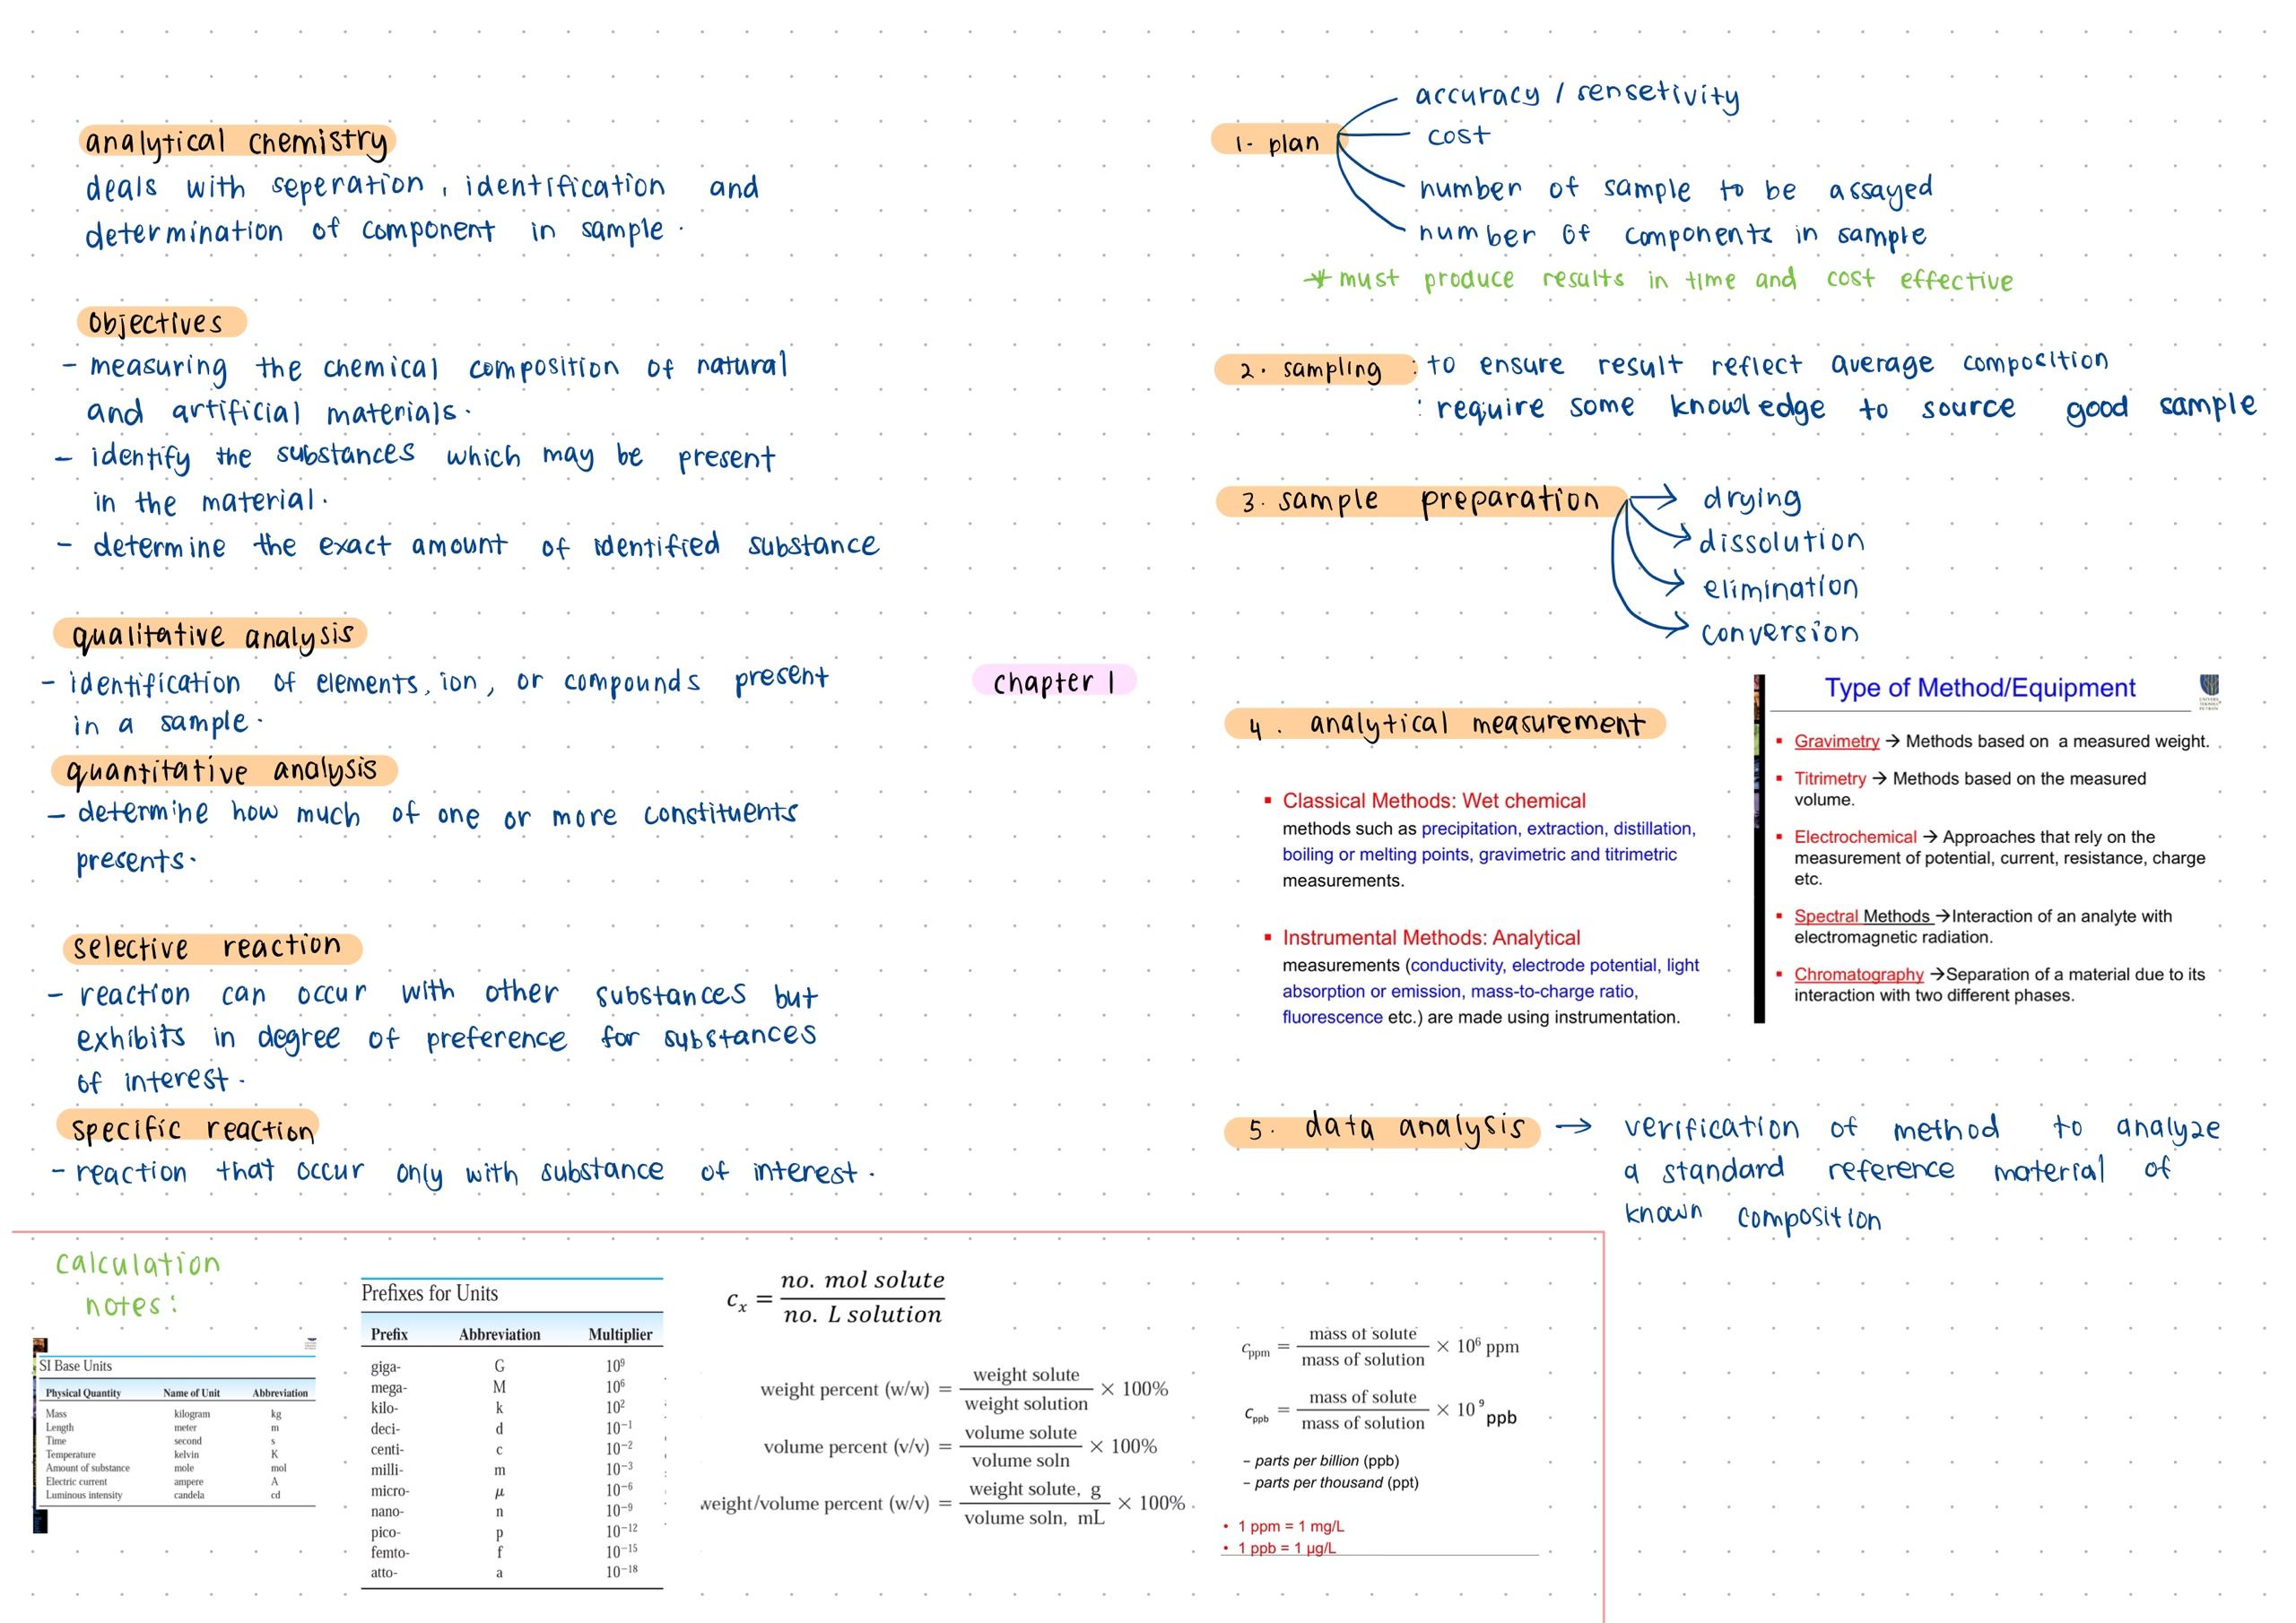 analytical chemistry
deals with seperation, identification and
determination of component in sample.
objectives
- measuring the chemical composition of natural
and artificial materials.
- identify the substances which may be present
in the material.
- determine the exact amount of identified substance
qualitative analysis
- identification of elements, ion, or compounds present
in a sample.
quantitative analysis
- determine how much of one or more constituents
presents.
selective reaction
- reaction can occur with other substances but
exhibits in degree of preference for substances
of interest.
specific reaction
- reaction that occur only with substance of interest.
chapter 1
1. plan
accuracy / sensetivity
cost
number of sample to be assayed
number of components in sample
* must produce results in time and cost effective
2. sampling : to ensure result reflect average composition
: require some knowledge to source good sample
3. sample preparation
→ drying
→ dissolution
→ elimination
→ conversion
4. analytical measurement
▪ Classical Methods: Wet chemical
methods such as precipitation, extraction, distillation,
boiling or melting points, gravimetric and titrimetric
measurements.
▪ Instrumental Methods: Analytical
measurements (conductivity, electrode potential, light
absorption or emission, mass-to-charge ratio,
fluorescence etc.) are made using instrumentation.
Type of Method/Equipment
▪ Gravimetry → Methods based on a measured weight.
▪ Titrimetry → Methods based on the measured
volume.
▪ Electrochemical → Approaches that rely on the
measurement of potential, current, resistance, charge
etc.
▪ Spectral Methods →Interaction of an analyte with
electromagnetic radiation.
▪ Chromatography →Separation of a material due to its
interaction with two different phases.
5. data analysis → verification of method to analyze
a standard reference material of
known composition
calculation
notes:
SI Base Units
Physical Quantity Name of Unit Abbreviation
Mass kilogram kg
Length meter m
Time second s
Temperature kelvin K
Amount of substance mole mol
Electric current ampere A
Luminous intensity candela cd
Prefixes for Units
Prefix Abbreviation Multiplier
giga- G 10⁹
mega- M 10⁶
kilo- k 10²
deci- d 10⁻¹
centi- c 10⁻²
milli- m 10⁻³
micro- μ 10⁻⁶
nano- n 10⁻⁹
pico- p 10⁻¹²
femto- f 10⁻¹⁵
atto- a 10⁻¹⁸
cₓ = no. mol solute / no. L solution
weight percent (w/w) = weight solute / weight solution × 100%
volume percent (v/v) = volume solute / volume soln × 100%
weight/volume percent (w/v) = weight solute, g / volume soln, mL × 100%
c ppm = mass of solute / mass of solution × 10⁶ ppm
c ppb = mass of solute / mass of solution × 10⁹ ppb
– parts per billion (ppb)
– parts per thousand (ppt)
• 1 ppm = 1 mg/L
• 1 ppb = 1 μg/L